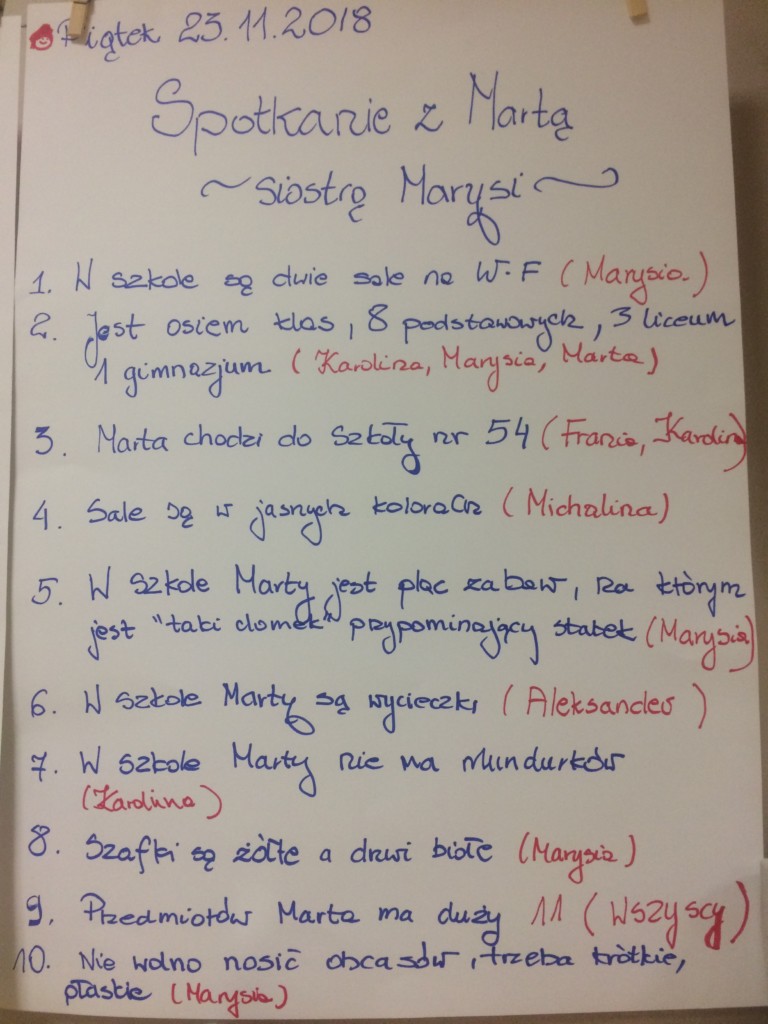 Piątek 23.11.2018
Spotkanie z Martą
~ siostrą Marysi ~
1. W szkole są dwie sale na W-F (Marysia.)
2. Jest osiem klas, 8 podstawowych, 3 liceum
1 gimnazjum (Karolina, Marysia, Marta)
3. Marta chodzi do Szkoły nr 54 (Frania, Karolina)
4. Sale są w jasnych kolorach (Michalina)
5. W Szkole Marty jest plac zabaw, za którym
jest "taki domek" przypominający statek (Marysia)
6. W szkole Marty są wycieczki (Aleksander)
7. W szkole Marty nie ma mundurków
(Karolina)
8. Szafki są żółte a drzwi białe (Marysia)
9. Przedmiotów Marta ma duży 11 (Wszyscy)
10. Nie wolno nosić obcasów, trzeba krótkie,
płaskie (Marysia)